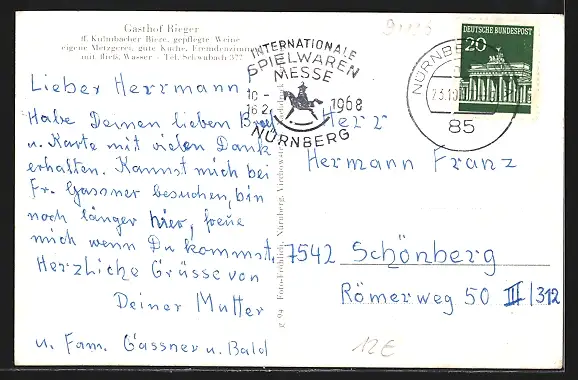 Gasthof Rieger
ff. Kulmbacher Biere, gepflegte Weine
eigene Metzgerei, gute Küche, Fremdenzimmer
mit fließ. Wasser · Tel. Schwabach 377
Lieber Herrmann
Habe Deinen lieben Brief
u. Karte mit vielen Dank
erhalten. Kannst mich bei
Fr. Gassner besuchen, bin
noch länger hier, freue
mich wenn Du kommst.
Herzliche Grüsse von
Deiner Mutter
u. Fam. Gassner u. Bald
INTERNATIONALE
SPIELWAREN
MESSE
10.-
16.2.
1968
NÜRNBERG
NÜRNBERG
85
DEUTSCHE BUNDESPOST
20
Herr
Hermann Franz
7542 Schönberg
Römerweg 50 III/312
12€